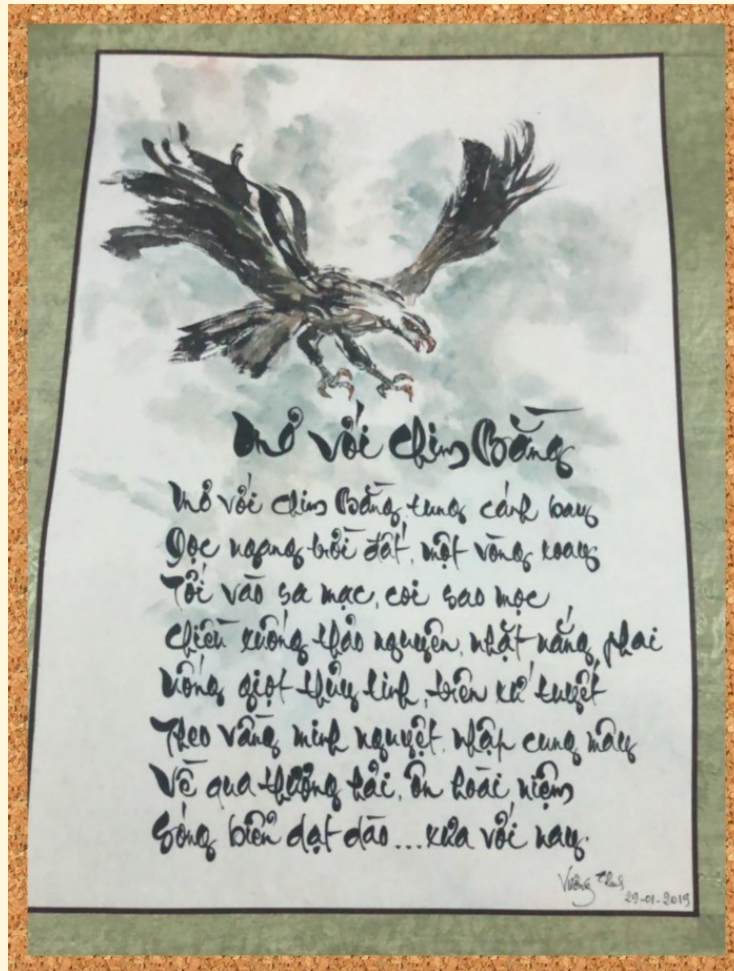 Mơ với chim Bằng
Mơ với chim Bằng tung cánh bay
Dọc ngang trời đất, một vòng xoay
Tối vào sa mạc, coi sao mọc
Chiều xuống thảo nguyên, nhặt nắng phai
Uống giọt thủy tinh, trên xứ tuyết
Theo vầng minh nguyệt, nhập cung mây
Về qua thương hải, ôn hoài niệm
Sóng biển dạt dào...xưa với nay.
Vương
29-01-2019